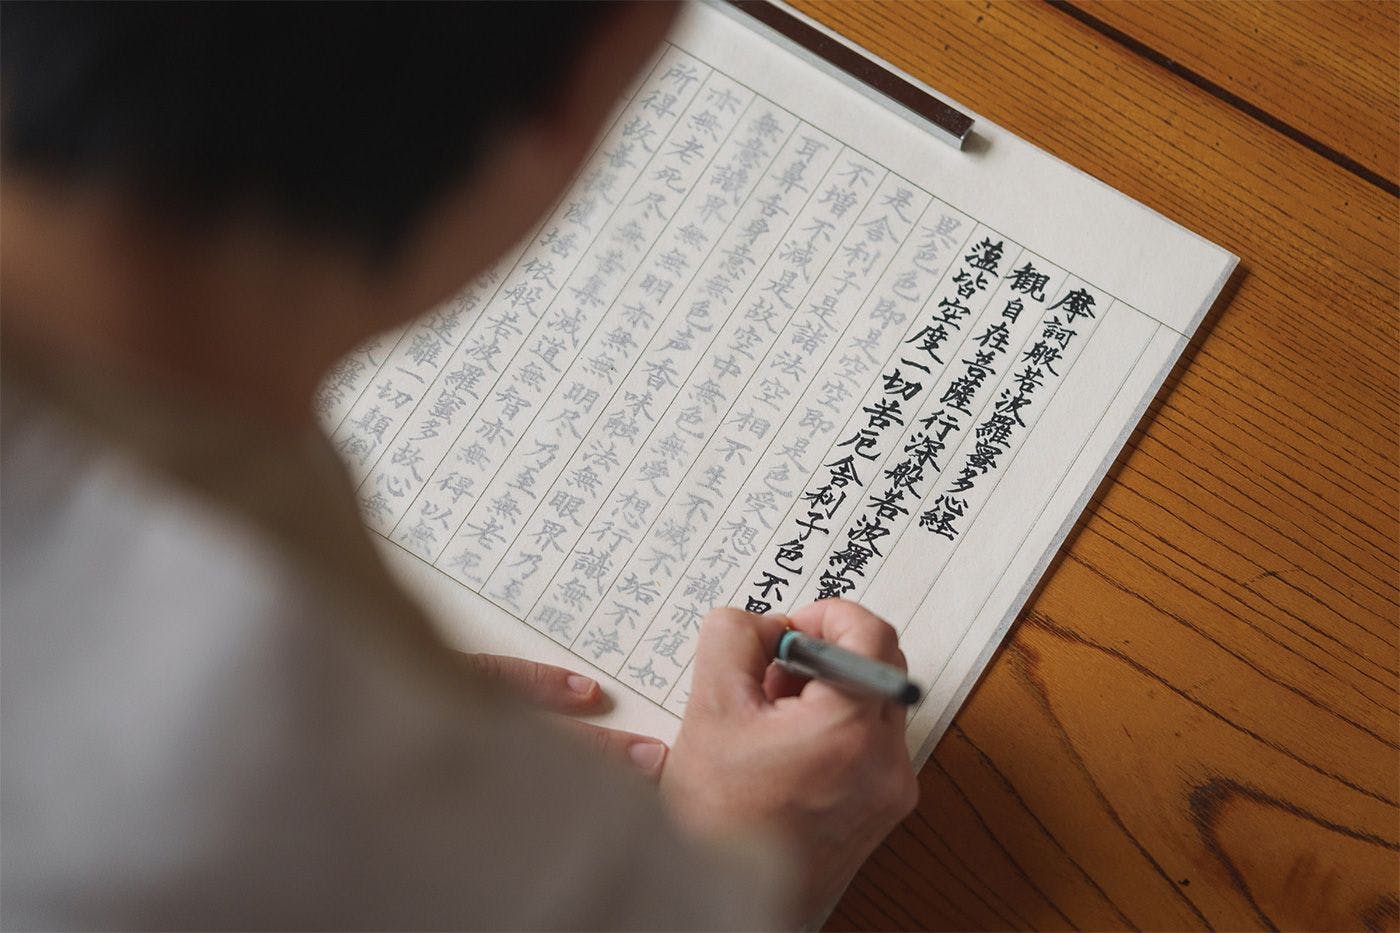 摩訶般若波羅蜜多心経
観自在菩薩行深般若波羅蜜
蘊皆空度一切苦厄舎利子色不異
異色色即是空空即是色受想行識亦復如
是舎利子是諸法空相不生不滅不垢不浄
不増不減是故空中無色無受想行識無眼
耳鼻舌身意無色声香味触法無眼界乃至
無意識界無無明亦無無明尽乃至無老死
亦無老死尽無苦集滅道無智亦無得以無
所得故菩提薩埵依般若波羅蜜多故心無
遠離一切顛倒
羅